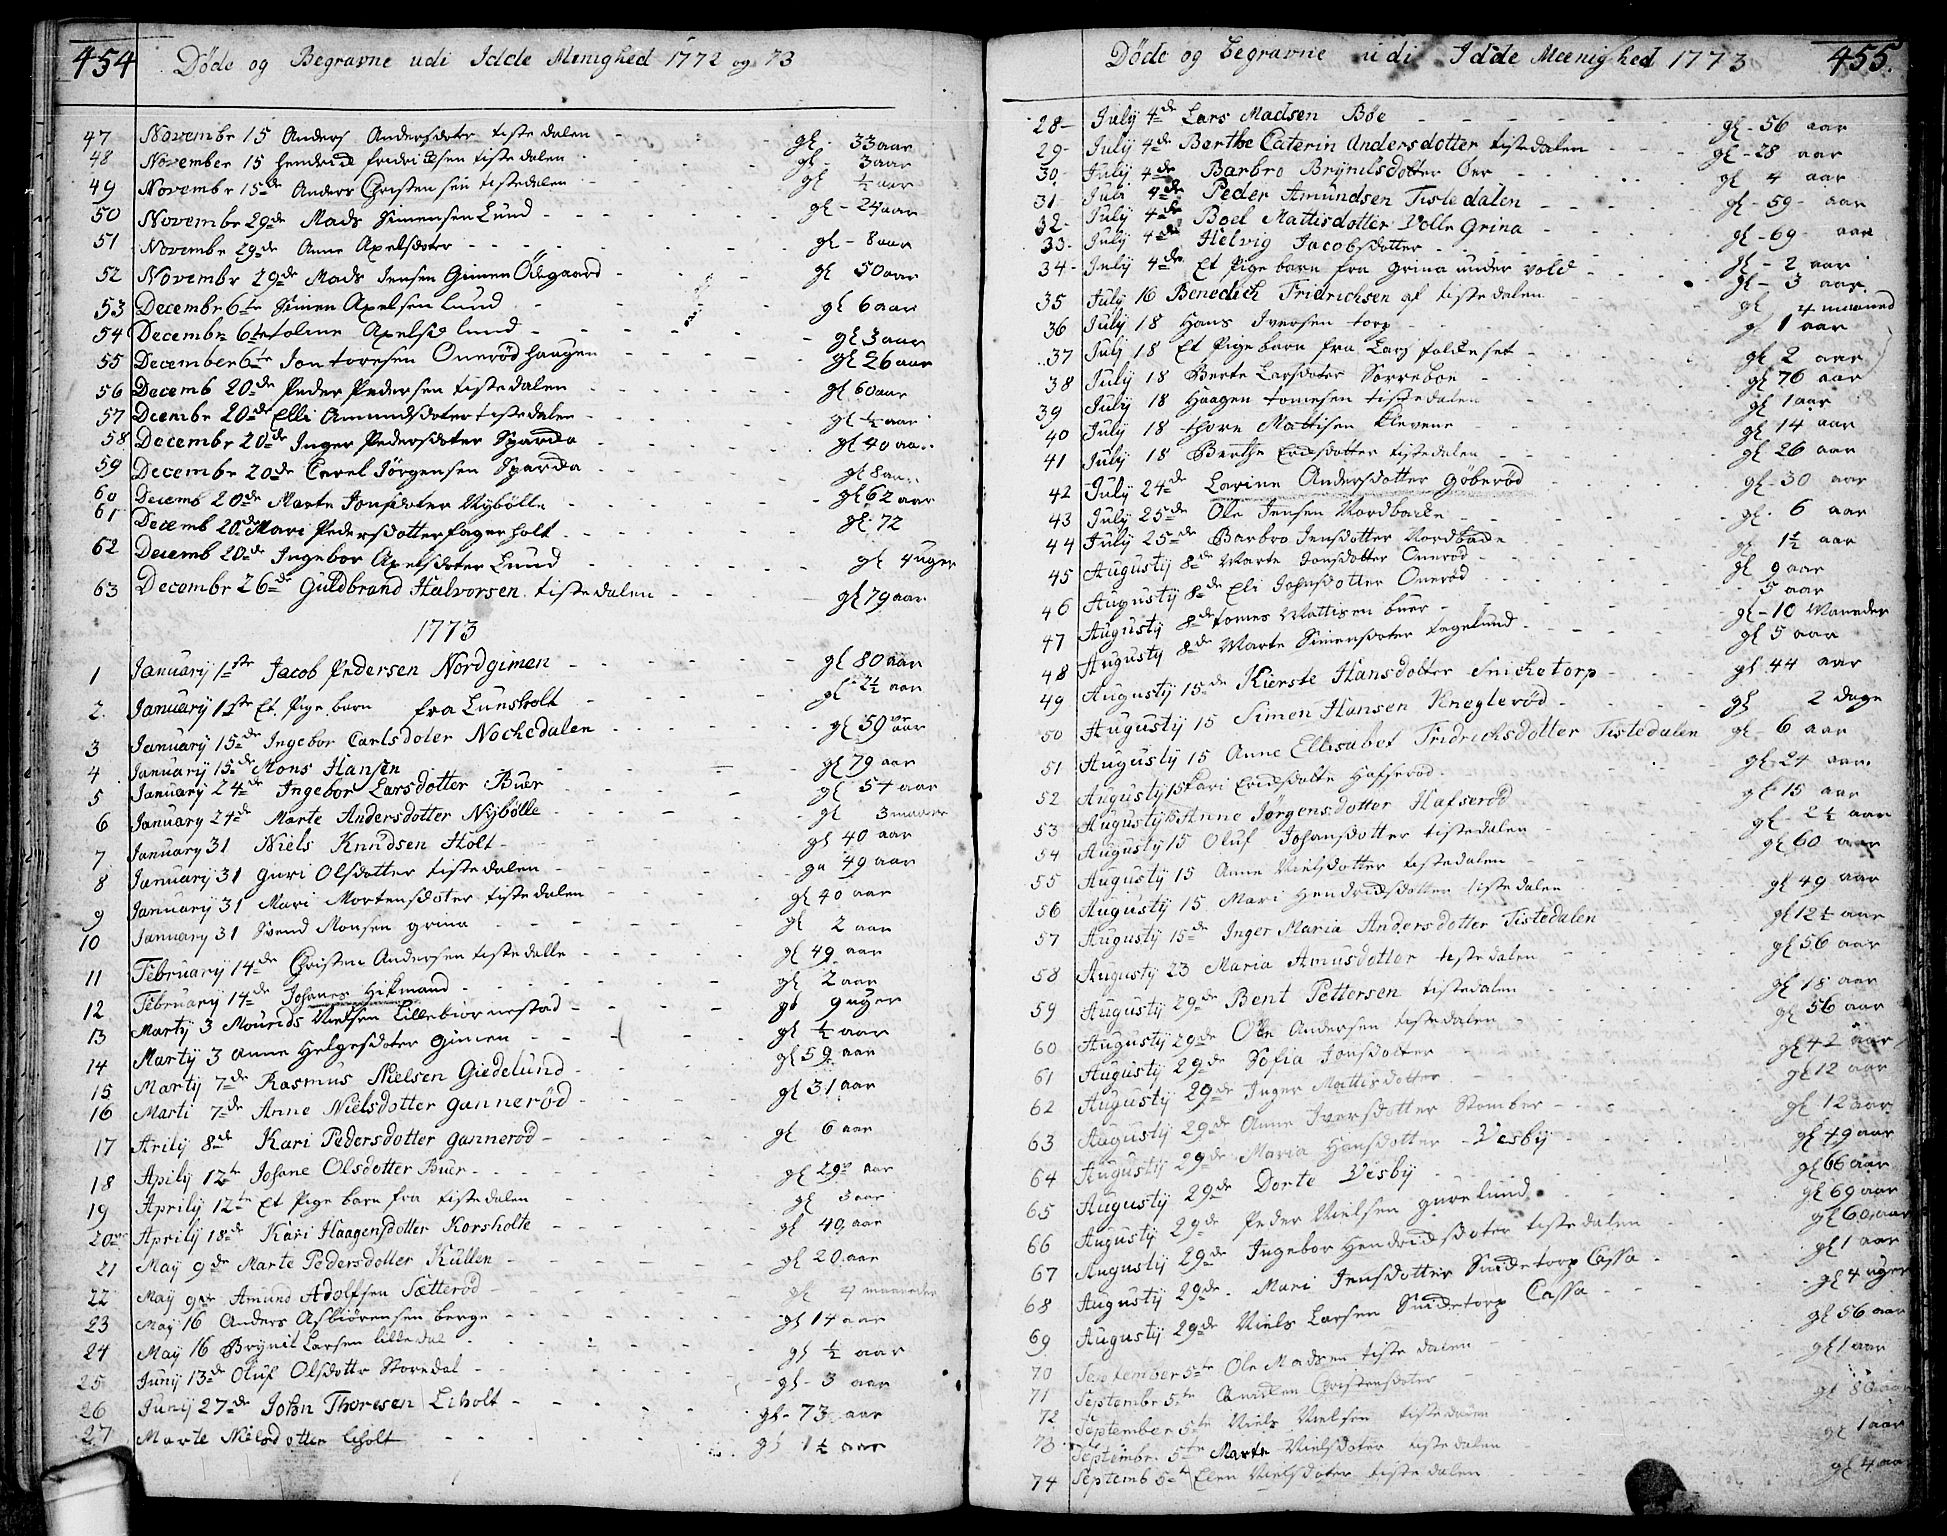 454 Døde og Begravne udi Idde Menighed 1772 og 73
47 Novembr 15 Anders Andersdoter tistedalen - gl - 33 aar
48 November 15 Hendrich fridrichsen tistedalen - gl - 3 aar
49 Novembr 15de Anders Christensen tistedalen - gl ½ aar
50 Novembr 29de Mads Simensen Lund - gl - 24 aar
51 Novembr 29de Anne Axelsdoter - gl - 8 aar
52 Novembr 29de Mads Jensen Gimen Ødegaard - gl 50 aar
53 Decembr 6te Simen Axelsen Lund - gl 6 aar
54 Decembr 6te Axelsdø Lund - gl 3 aar
55 December 6te Jon toresen Onerød haugen - gl 26 aar
56 Decemb 20de Peder Pedersen tistedalen - gl 60 aar
57 Decembr 20de Elli Amundsdoter tistedalen - gl ½ aar
58 Decembr 20de Inger Pedersdoter Sparda - gl 40 aar
59 Decembr 20de Carel Jørgensen Sparda - gl 8 aar
60 Decemb 20de Marte Jonsdoter Nybølle - gl 62 aar
61 Decemb 20de Mari Pedersdotter fagerholt - gl 72
62 Decemb 20de Ingebor Axelsdoter Lund - gl 4 uger
63 Decembr 26de Guldbrand Halvorsen tistedalen - gl 79 aar
1773
1 January 1ste Jacob Pedersen Nordgimen - gl 80 aar
2. January 1ste Et Pige barn fra Lunsholt - gl 2½ aar
3 January 15de Ingebor Carlsdoter Nochedalen - gl 59 aar
4 January 15de Mons Hansen - gl 79 aar
5 January 24de Ingebor Larsdotter Buer - gl 54 aar
6 January 24de Marte Andersdotter Nybølle - gl 3 maaner
7 January 31 Niels Knudsen Holt - gl 40 aar
8 January 31 Guri Olsdotter tistedalen - ga 49 aar
9 January 31 Mari Mortensdoter tistedalen - gl 40 aar
10 January 31 Svend Monsen grina - gl 2 aar
11 February 14de Christen Andersen tistedalle - gl 49 aar
12 February 14de Johanes Hitmand - gl 2 aar
13 Marty 3 Mourids Nielsen Lillebiørnestad - gl 9 uger
14 Marty 3 Anne Helgesdoter Gimen - gl ½ aar
15 Marty 7de Rasmus Nielsen Giedelund - gl 59 aar
16 Marti 7de Anne Nielsdotter gannerød - gl 31 aar
17 Arily 8de Kari Pedersdotter gannerød - gl 6 aar
18 Aprily 12te Johane Olsdotter Buer - gl 29 aar
19 Aprily 12te Et Pige barn fra tistedalen - gl 3 aar
20 Aprily 18de Kari Haagensdotter Korsholte - gl 40 aar
21 May 9de Marte Pedersdotter Kullen - gl 20 aar
22 May 9de Amund Adolfsen Sætterød - gl 4 maaneder
23 May 16 Anders Asbiørensen berge - gl 14 aar
24 May 16 Brynil Larsen lilledal - gl ½ aar
25 Juny 13de Oluf Olsdottr Storedal - gl - 3 aar
26 Juny 27de John Thoresen Liholt - gl - 73 aar
27 Marte Nielsdotter Liholt - gl 1½ aar
Døde og Begravne udi Idde Meenighed 1773 455.
28 - July 4de Lars Madsen Bøe - gl - 56 aar
29 - July 4de Berthe Caterin Andersdotter tistedalen - gl - 28 aar
30 - July 4de Barbro Brynilsdotter Øer - gl 4 aar
31 July 4de Peder Amundsen Tistedalen - gl - 59 - aar
32 - July 4de Boel Mattisdotter Volle Grina - gl - 69 - aar
33 - July 4de Helvig Jacobsdotter - gl - 2 aar
34 - July 4de Et Pige barn fra grina under vold - gl - 3 aar
35 July 16 Benedich Fridrichsen af tistedalen - gl 4 maaned
36 July 18 Hans Iversen torp - gl 1 aar
37 July 18 Et Pige barn fra Lars folkeset - gl 2 aar
38 July 18 Berte Larsdoter Sørreboe - gl 76 aar
39 July 18 Haagen tomesen tistedalen - gl 1 aar
40 July 18 thore Mattisen Klevene - gl 14 aar
41 July 18 Berthe Erichsdotter tistedalen - gl 26 aar
42 July 24de Larine Andersdotter Gøberød - gl - 30 aar
43 July 25de Ole Jensen Nordbacke - gl - 6 aar
44 July 25de Barbro Jensdotter Nordbacke - gl 1½ aar
45 Augusty 8de Marte Jonsdotter Onerød - gl 9 aar
46 Augusty 8de Eli Johnsdotter Onerød - 5 aar
47 Augusty 8de tomes Mattisen buer - gl - 10 Maaneder
48 Augusty 8de Marte Simensdoter tegelund - gl 5 aar
49 Augusty 15de Kierste Hansdotter Snicketorp - gl 44 aar
50 Augusty 15 Simen Hansen Kneglerød - gl 2 dage
51 Augusty 15 Anne Ellisabet Fridrichsdotter Tistedalen gl - 6 aar
52 Augusty 15 Kari Erichsdotte Hafserød - gl - 24 aar
53 Augusty 15 Anne Jørgensdotter Hafserød - gl 15 aar
54 Augusty 15 Oluf Johansdotter tistedalen - gl - 2½ aar
55 Augusty 15 Anne Nielsdotter tistedalen - gl 60 aar
56 Augusty 15 Mari Hendrichsdotter tistedalen - gl 49 aar
57 Augusty 15de Inger Maria Andersdotter Tistedalen - gl 12½ aar
58 Augusty 23 Maria Amusdotter tistedalen - gl 56 aar
59 Augusty 29de Bent Pettersen tistedalen - gl 18 aar
60 Augusty 29de Ole Andersen tistedalen - gl 56 aar
61 Augusty 29de Sofia Jonsdotter - gl 42 aar
62 Augusty 29de Inger Mattisdotter - gl 12 aar
63 Augusty 29de Anne Iversdotter Stomber - gl 12 aar
64 Augusty 29de Maria Hansdotter Vesby - gl 49 aar
65 Augusty 29de Dorte Vesby - gl 66 aar
66 Augusty 29de Peder Nielsen gurelund - gl 69 aar
67 Augusty 29de Ingebor Hendrichsdoter tistedalen - gl 60 aar
68 Augusty 29de Mari Jensdotter Snidetorp Cassa - gl 1 aar
69 Augusty 29de Niels Larsen Snidetorp Cassa - gl 4 uger
70 September 5te Ole Madsen tistedalen - gl 56 aar
71 September 5te Christensdoter - gl 1 aar
72 September 5te Niels Nielsen tistedalen - gl 80 aar
73 Septembr 5te Marte Nielsdoter tistedalen - gl 1 aar
74 Septemb 5te Elen Nielsdoter tistedalen - gl 4 aar